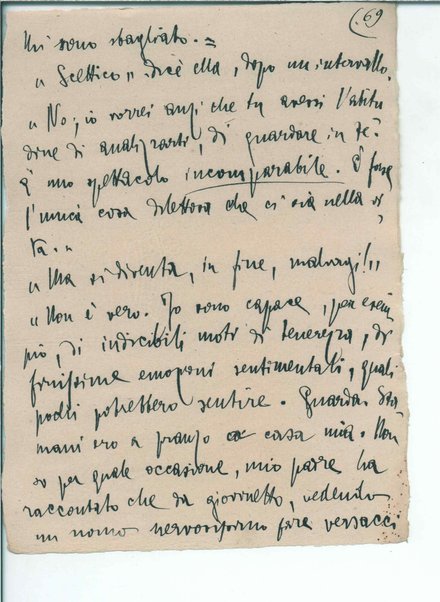 69
Mi sono sbagliato. =
"Scettico" dice ella, dopo un intervallo.
"No; io vorrei anzi che tu avessi l'atitu
dine di analizzarti, di guardare in te.
È uno spettacolo incomparabile. È forse
l'unica cosa dilettosa che ci sia nella vi,
ta."
"Ma si diventa, in fine, malvagi!"
"Non è vero. Io sono capace, per esem
pio, di indicibili moti di tenerezza, di
finissime emozioni sentimentali, quali
pochi potrebbero sentire. Guarda. Sta
mani ero a pranzo a casa mia. Non
so per quale occasione, mio padre ha
raccontato che da giovinetto, vedendo
un uomo nervosissimo fare versacci